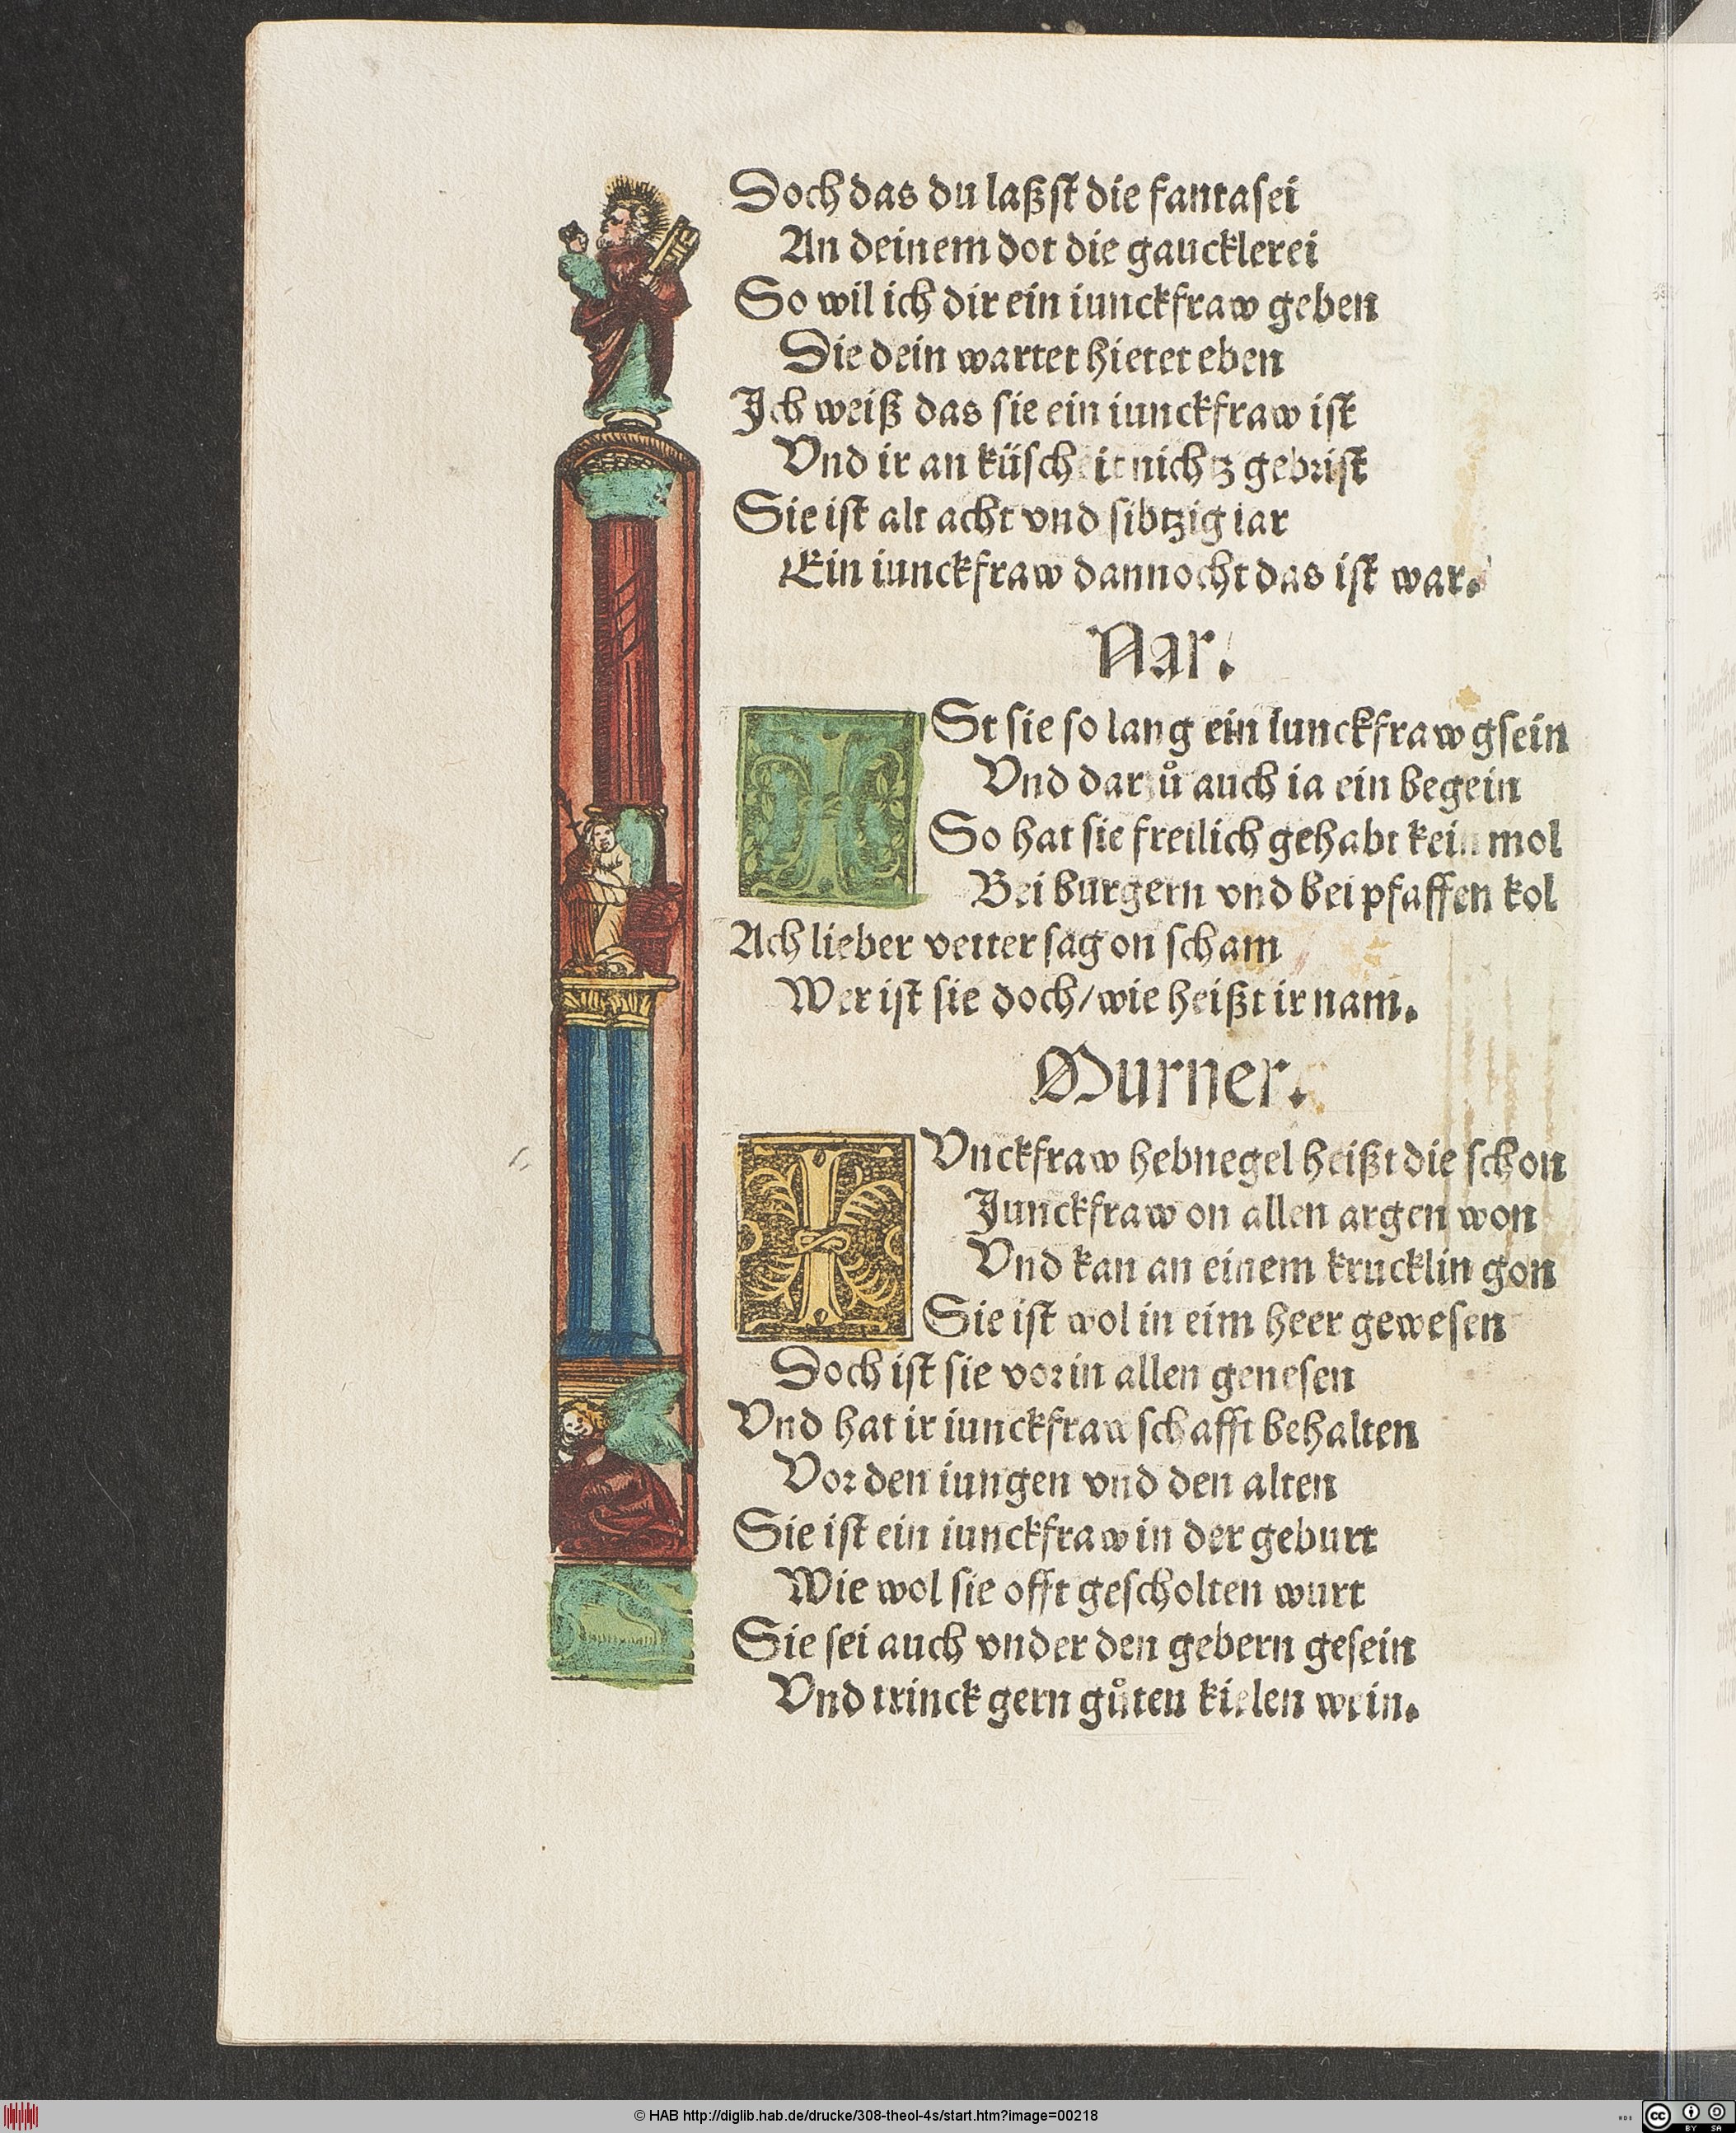 Doch das du laßst die fantasei
An deinem dot die gaucklerei
So wil ich dir ein iunckfraw geben
Die dein wartet hietet eben
Ich weiß das sie ein iunckfraw ist
Vnd ir an küscheit nichtz gebrist
Sie ist alt acht vnd sibtzig iar
Ein iunckfraw dannocht das ist war.
Nar.
ISt sie so lang ein iunckfraw gsein
Vnd darzů auch ia ein begein
So hat sie freilich gehabt kein mol
Bei burgern vnd bei pfaffen kol
Ach lieber vetter sag on scham
Wer ist sie doch/wie heißt ir nam.
Murner.
IVnckfraw hebnegel heißt die schon
Junckfraw on allen argen won
Vnd kan an einem krucklin gon
Sie ist wol in eim heer gewesen
Doch ist sie vor in allen genesen
Vnd hat ir iunckfraw schafft behalten
Vor den iungen vnd den alten
Sie ist ein iunckfraw in der geburt
Wie wol sie offt gescholten wurt
Sie sei auch vnder den gebern gesein
Vnd trinck gern gůten kielen wein.
© HAB http://diglib.hab.de/drucke/308-theol-4s/start.htm?image=00218
HAB
cc BY SA